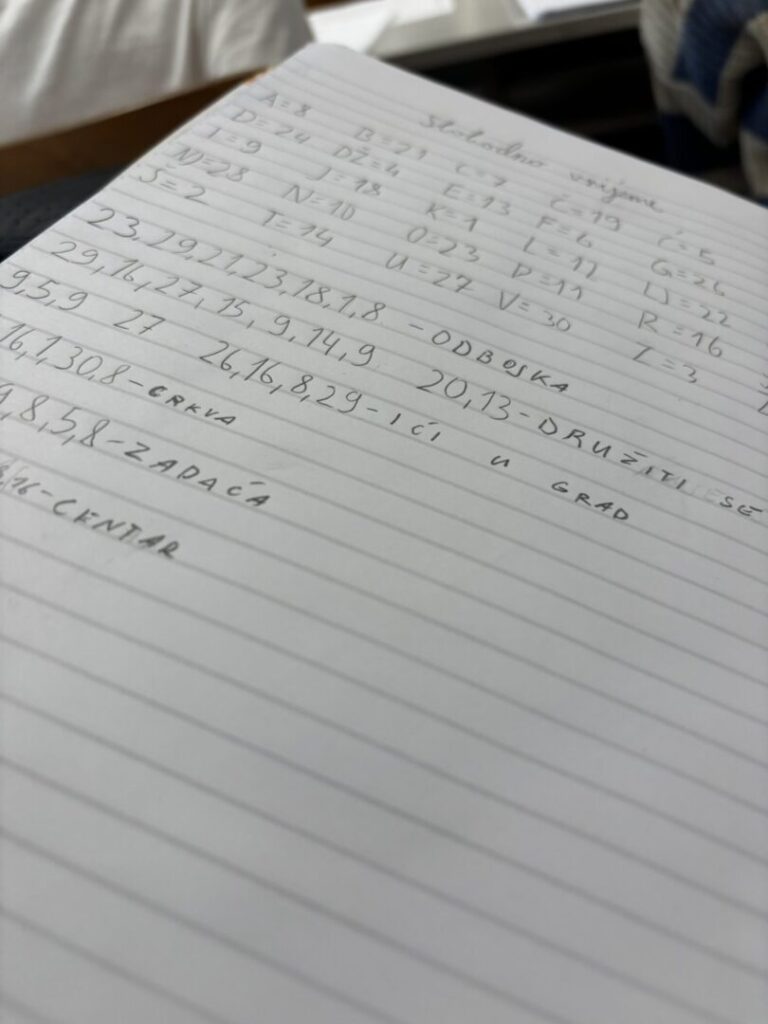 Slobodno vrijeme
A=8 B=21 C=7 Č=19 Ć=5
D=24 DŽ=4 E=13 F=6 G=26
I=9 J=18 K=1 L=17 LJ=22
NJ=28 N=10 O=23 P=11 R=16
S=2 T=14 U=27 V=30 Z=3
23,29,21,23,18,1,8 - ODBOJKA
29,16,27,15,9,14,9 20,13 - DRUŽITI SE
9,5,9 27 26,16,8,29 - IĆI U GRAD
16,1,30,8 - CRKVA
8,5,8 - ZADAĆA
16 - CENTAR